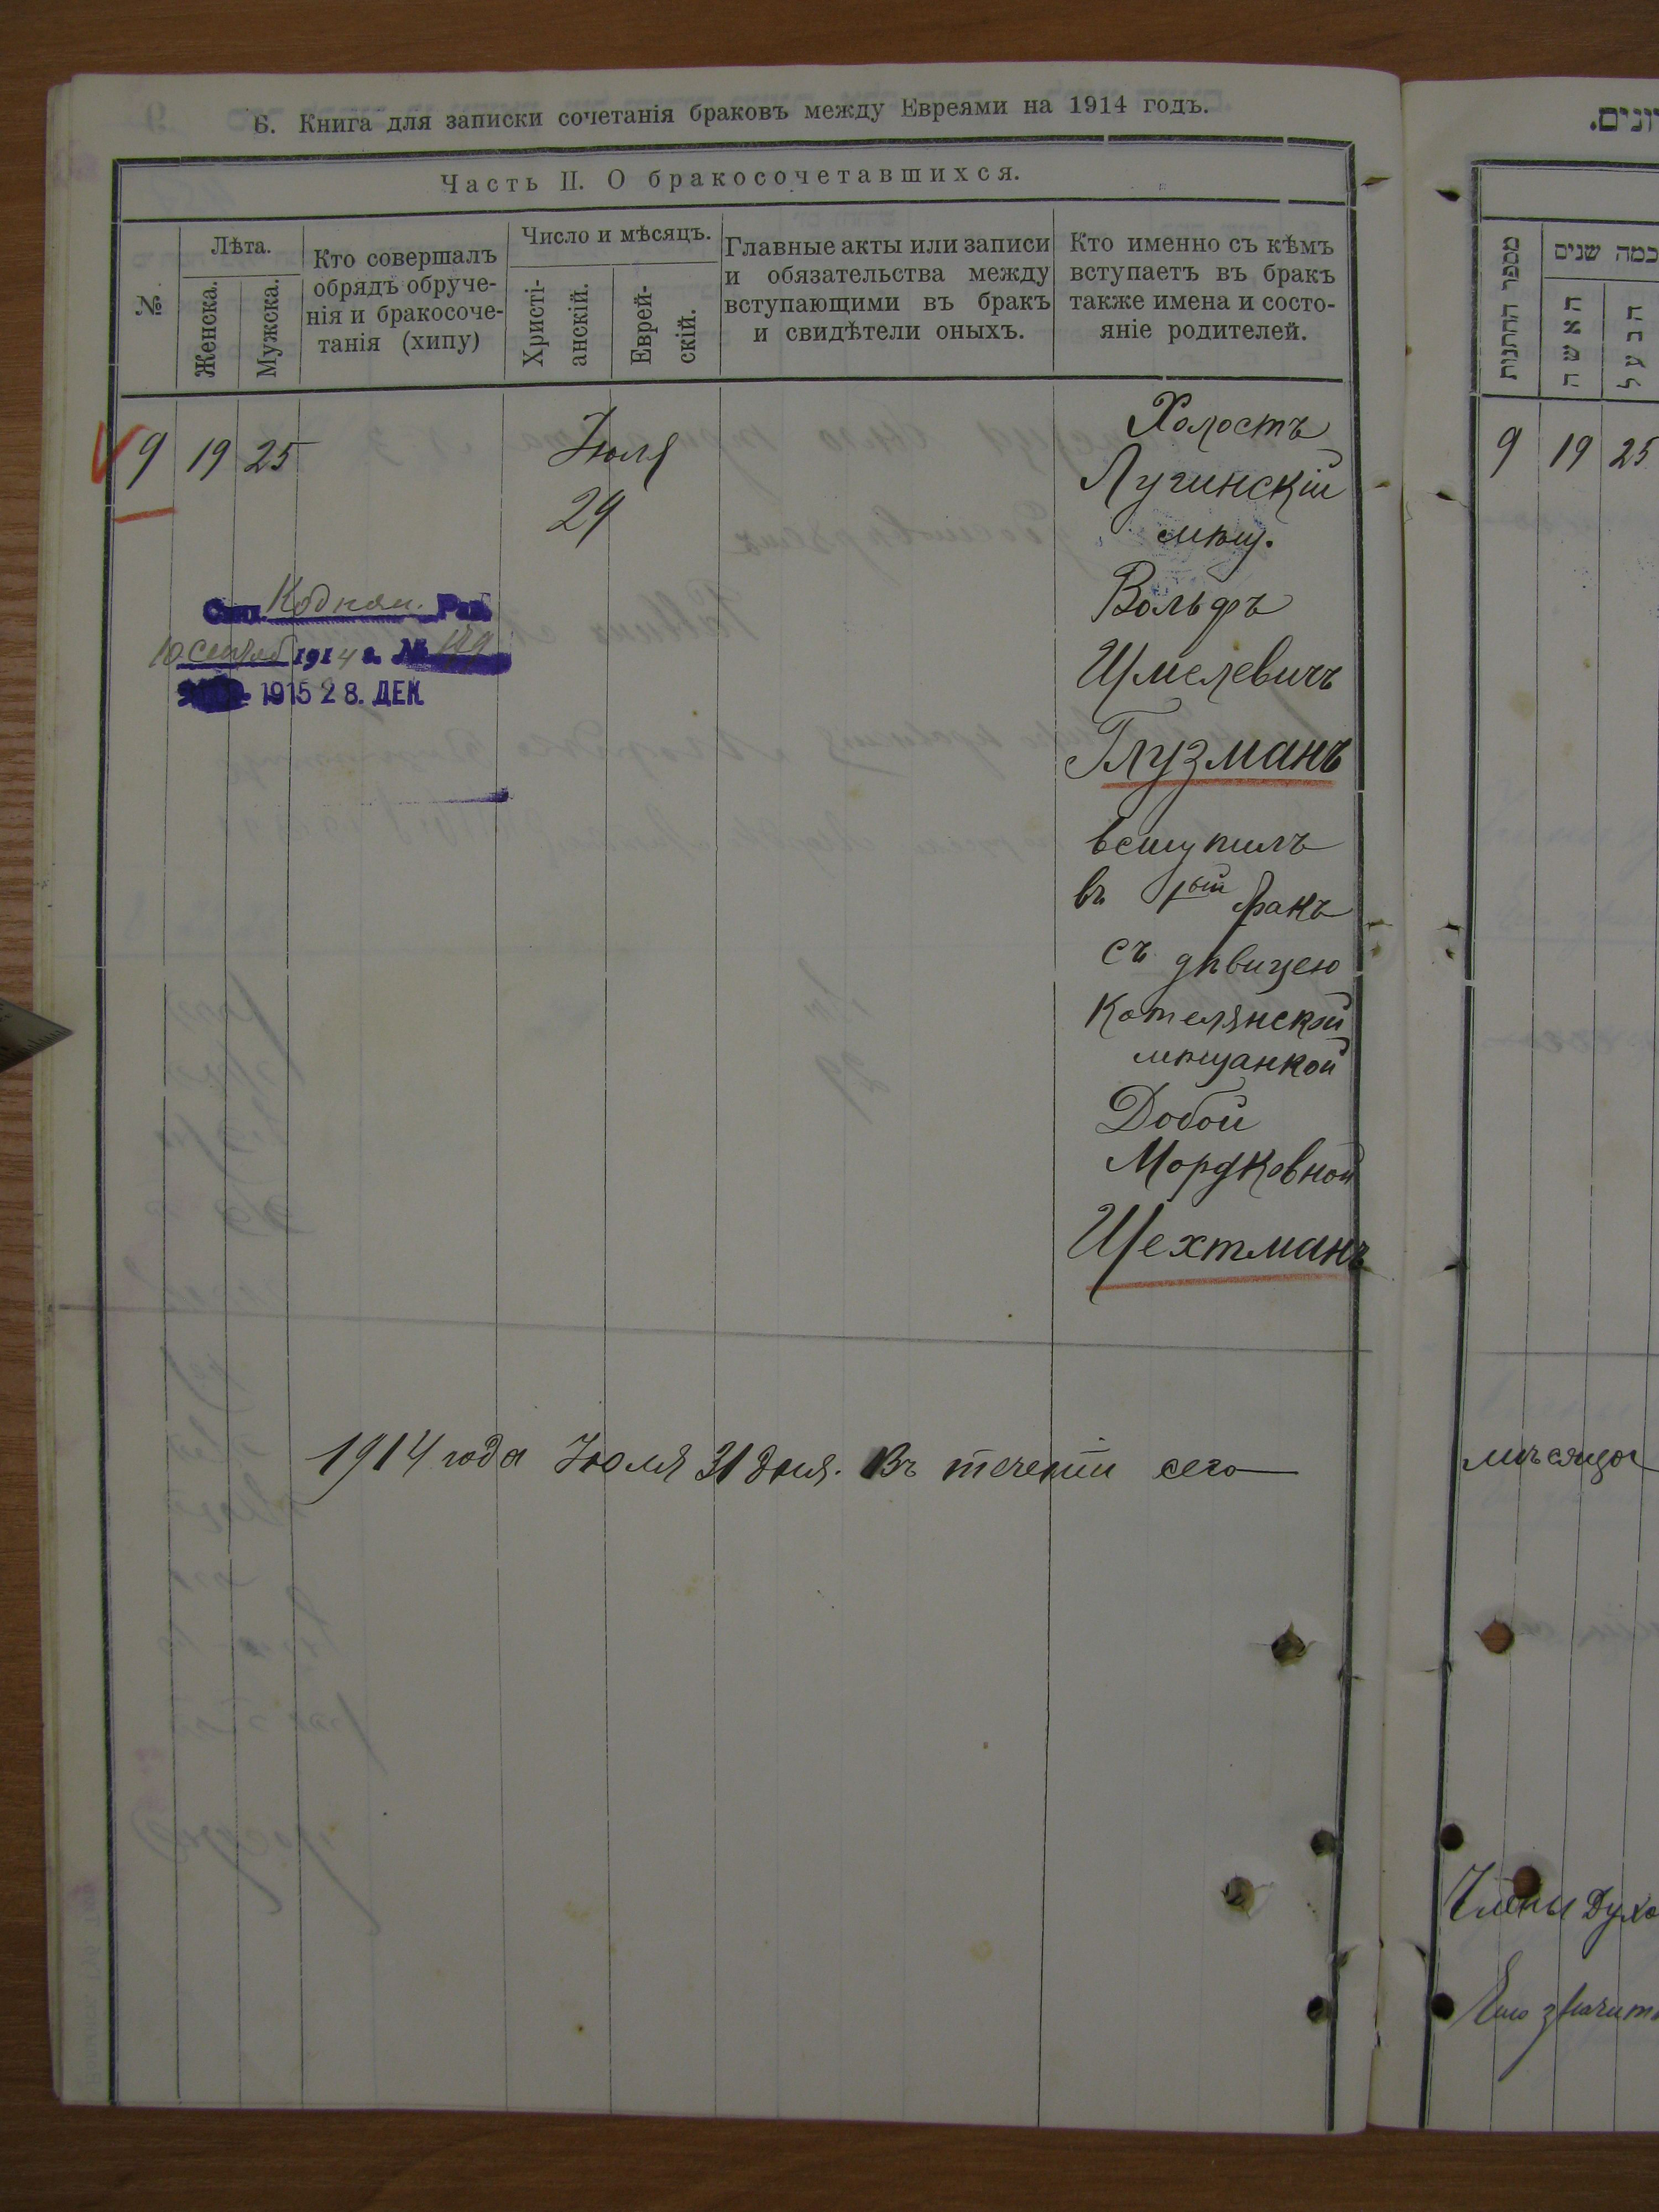 6. Книга для записки сочетанія браковъ между Евреями на 1914 годъ.
Часть II. О бракосочетавшихся.
№
Лѣта.
Женска.
Мужска.
Кто совершалъ
обрядъ обруче-
нія и бракосоче-
танія (хипу)
Число и мѣсяцъ.
Христі-
анскій.
Еврей-
скій.
Главные акты или записи
и обязательства между
вступающими въ бракъ
и свидѣтели оныхъ.
Кто именно съ кѣмъ
вступаетъ въ бракъ
также имена и состо-
яніе родителей.
9 19 25
Іюля
29
Холостъ
Лугинскій
мѣщ.
Вольфъ
Шмелевичъ
Глузманъ
вступилъ
въ 1ый бракъ
съ дѣвицею
Котелянской
мѣщанкой
Добой
Мордковной
Шехтманъ
Кодням. Рав.
10 Сентяб 1914 г. №
1915 28. ДЕК.
1914 года Іюля 31 дня. Въ теченіи сего
מספר החתנות
כמה שנים
האשה
הבעל
9 19 25
мѣсяца
Члены Духо